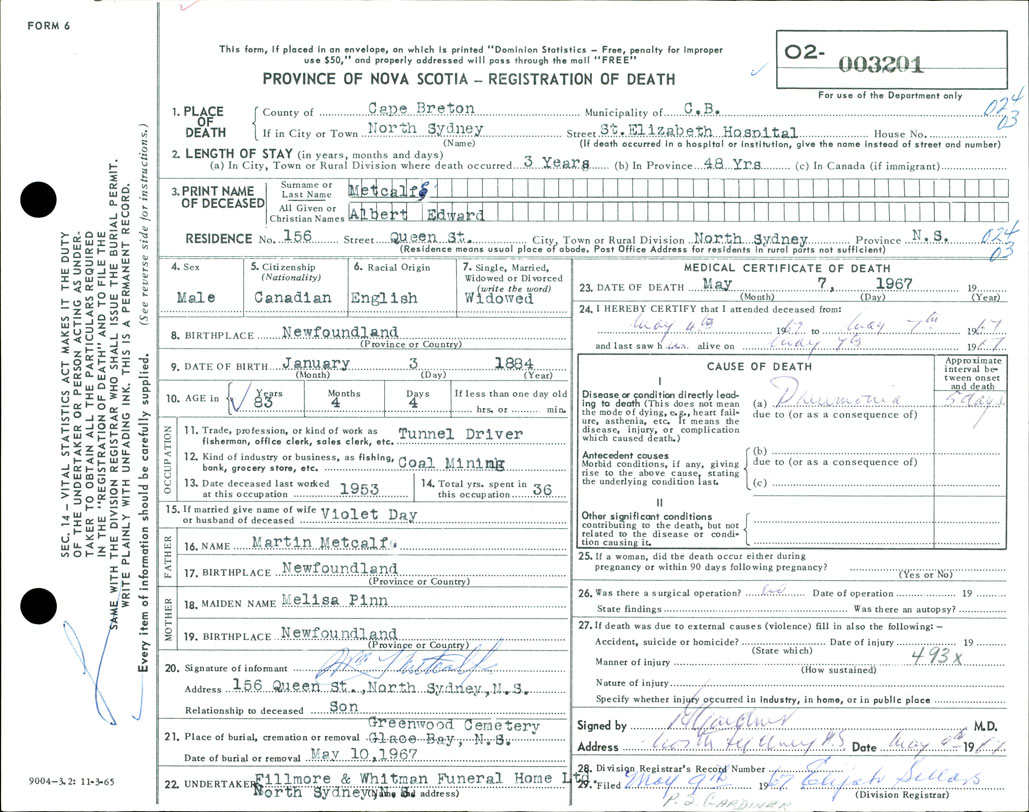 FORM 6
This form, if placed in an envelope, on which is printed "Dominion Statistics – Free, penalty for improper
use $50," and properly addressed will pass through the mail "FREE"
PROVINCE OF NOVA SCOTIA – REGISTRATION OF DEATH
O2- 003201
For use of the Department only
SEC. 14 – VITAL STATISTICS ACT MAKES IT THE DUTY
OF THE UNDERTAKER OR PERSON ACTING AS UNDER-
TAKER TO OBTAIN ALL THE PARTICULARS REQUIRED
IN THE "REGISTRATION OF DEATH" AND TO FILE THE
SAME WITH THE DIVISION REGISTRAR WHO SHALL ISSUE THE BURIAL PERMIT.
WRITE PLAINLY WITH UNFADING INK. THIS IS A PERMANENT RECORD.
Every item of information should be carefully supplied. (See reverse side for instructions.)
1. PLACE OF DEATH
County of Cape Breton Municipality of C.B. 024
If in City or Town North Sydney Street St.Elizabeth Hospital House No. 03
(Name) (If death occurred in a hospital or institution, give the name instead of street and number)
2. LENGTH OF STAY (in years, months and days)
(a) In City, Town or Rural Division where death occurred 3 Years (b) In Province 48 Yrs (c) In Canada (if immigrant)
3. PRINT NAME OF DECEASED
Surname or Last Name Metcalf
All Given or Christian Names Albert Edward
RESIDENCE No. 156 Street Queen St. City, Town or Rural Division North Sydney Province N.S. 024
(Residence means usual place of abode. Post Office Address for residents in rural parts not sufficient) 03
4. Sex
Male
5. Citizenship
(Nationality)
Canadian
6. Racial Origin
English
7. Single, Married,
Widowed or Divorced
(write the word)
Widowed
8. BIRTHPLACE Newfoundland
(Province or Country)
9. DATE OF BIRTH January 3 1884
(Month) (Day) (Year)
10. AGE in Years Months Days If less than one day old
83 4 4 hrs. or min.
OCCUPATION
11. Trade, profession, or kind of work as
fisherman, office clerk, sales clerk, etc. Tunnel Driver
12. Kind of industry or business, as fishing,
bank, grocery store, etc. Coal Mining
13. Date deceased last worked
at this occupation 1953
14. Total yrs. spent in
this occupation 36
15. If married give name of wife
or husband of deceased Violet Day
FATHER
16. NAME Martin Metcalf
17. BIRTHPLACE Newfoundland
(Province or Country)
MOTHER
18. MAIDEN NAME Melisa Pinn
19. BIRTHPLACE Newfoundland
(Province or Country)
20. Signature of informant Wm Metcalf
Address 156 Queen St., North Sydney, N.S.
Relationship to deceased Son
21. Place of burial, cremation or removal Greenwood Cemetery
Glace Bay, N.S.
Date of burial or removal May 10,1967
22. UNDERTAKER Fillmore & Whitman Funeral Home Ltd.
North Sydney, N.S.
(Name and address)
9004-3.2: 11-3-65
MEDICAL CERTIFICATE OF DEATH
23. DATE OF DEATH May 7, 1967 19
(Month) (Day) (Year)
24. I HEREBY CERTIFY that I attended deceased from:
May 4th 1967 to May 7th 1967
and last saw him alive on May 7th 1967
CAUSE OF DEATH
Approximate
interval be-
tween onset
and death
I
Disease or condition directly lead-
ing to death (This does not mean
the mode of dying, e.g., heart fail-
ure, asthenia, etc. It means the
disease, injury, or complication
which caused death.)
(a) Pneumonia 5 days
due to (or as a consequence of)
Antecedent causes
Morbid conditions, if any, giving
rise to the above cause, stating
the underlying condition last.
(b)
due to (or as a consequence of)
(c)
II
Other significant conditions
contributing to the death, but not
related to the disease or condi-
tion causing it.
25. If a woman, did the death occur either during
pregnancy or within 90 days following pregnancy?
(Yes or No)
26. Was there a surgical operation? no Date of operation 19
State findings Was there an autopsy?
27. If death was due to external causes (violence) fill in also the following: –
Accident, suicide or homicide? Date of injury 19
(State which)
Manner of injury 493x
(How sustained)
Nature of injury
Specify whether injury occurred in Industry, in home, or in public place
Signed by Gardiner M.D.
Address North Sydney N.S. Date May 9th 1967
28. Division Registrar's Record Number
29. Filed May 9th 1967 Elijah Sellars
(Division Registrar)
P. S. GARDINER